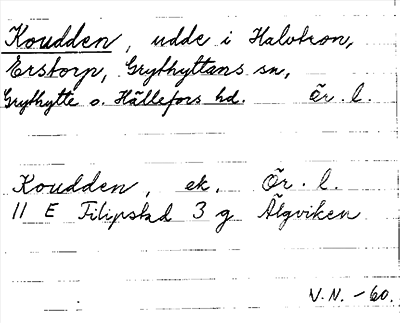 Koudden, udde i Halvtron,
Erstorp, Grythyttans sn,
Grythytte o. Hällefors hd. Ör. l.
Koudden, ek. Ör. l.
11 E Filipstad 3 g Älgviken
V.N. -60.